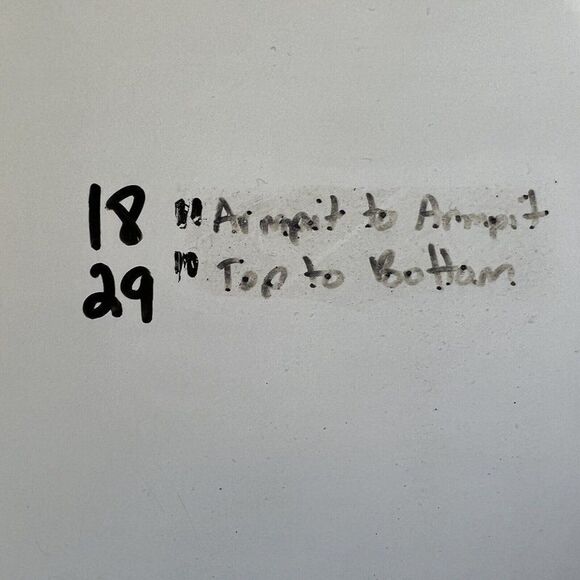 18 " Armpit to Armpit
29 " Top to Bottom